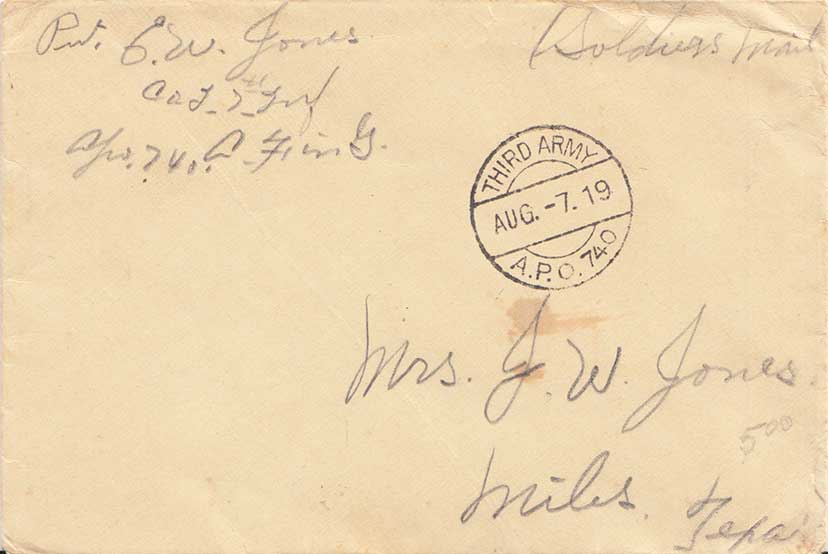 Pvt. E. W. Jones.
(Soldiers Mail
Co I. 7th Inf
Apo. 740.
THIRD ARMY
AUG. -7. 19
A.P.O. 740
Mrs. J. W. Jones.
500
Miles.
Texas